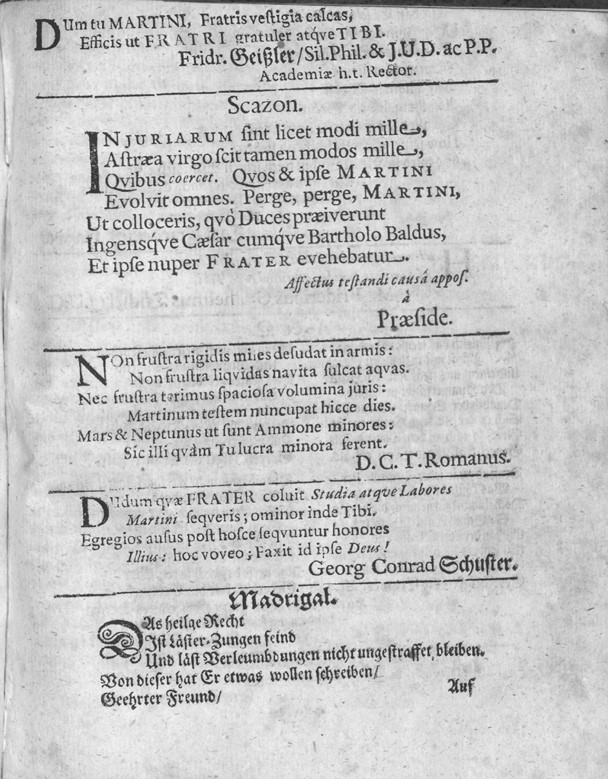 DUm tu MARTINI, Fratris vestigia calcas,
Efficis ut FRATRI gratuler atqve TIBI.
Fridr. Geißler/Sil. Phil. & J.U.D. ac P.P.
Academiæ h.t. Rector.
Scazon.
INJURIARUM sint licet modi mille,
Astræa virgo scit tamen modos mille,
Qvibus coercet. Qvos & ipse MARTINI
Evolvit omnes. Perge, perge, MARTINI,
Ut colloceris, qvò Duces præiverunt
Ingensqve Cæsar cumqve Bartholo Baldus,
Et ipse nuper FRATER evehebatur.
Affectus testandi causâ appos.
à
Præside.
NOn frustra rigidis miles desudat in armis:
Non frustra liqvidas navita sulcat aqvas.
Nec frustra terimus spaciosa volumina juris:
Martinum testem nuncupat hicce dies.
Mars & Neptunus ut sunt Ammone minores:
Sic illi qvàm Tu lucra minora ferent.
D.C.T. Romanus.
DUdum qvæ FRATER coluit Studia atqve Labores
Martini seqveris; ominor inde Tibi.
Egregios ausus post hosce seqvuntur honores
Illius: hoc voveo; Faxit id ipse Deus!
Georg Conrad Schuster.
Madrigal.
DAs heilge Recht
Ist Läster-Zungen feind
Und läst Verleumbdungen nicht ungestraffet bleiben.
Von dieser hat Er etwas wollen schreiben/
Geehrter Freund/
Auf